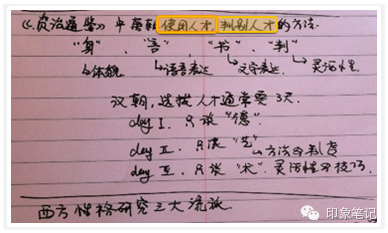 《资治通鉴》中唐朝使用人才，判别人才的方法.
“身”、“言”、“书”、“判”
↳体貌. ↳语言表达 ↳文字表达. ↳灵活性.
汉朝，选拔人才通常要3天.
day I. 只谈“德”.
day II. 只谈“艺” 方法与制度
day III. 只谈“术”. 灵活性与技巧.
西方性格研究三大流派.
印象笔记